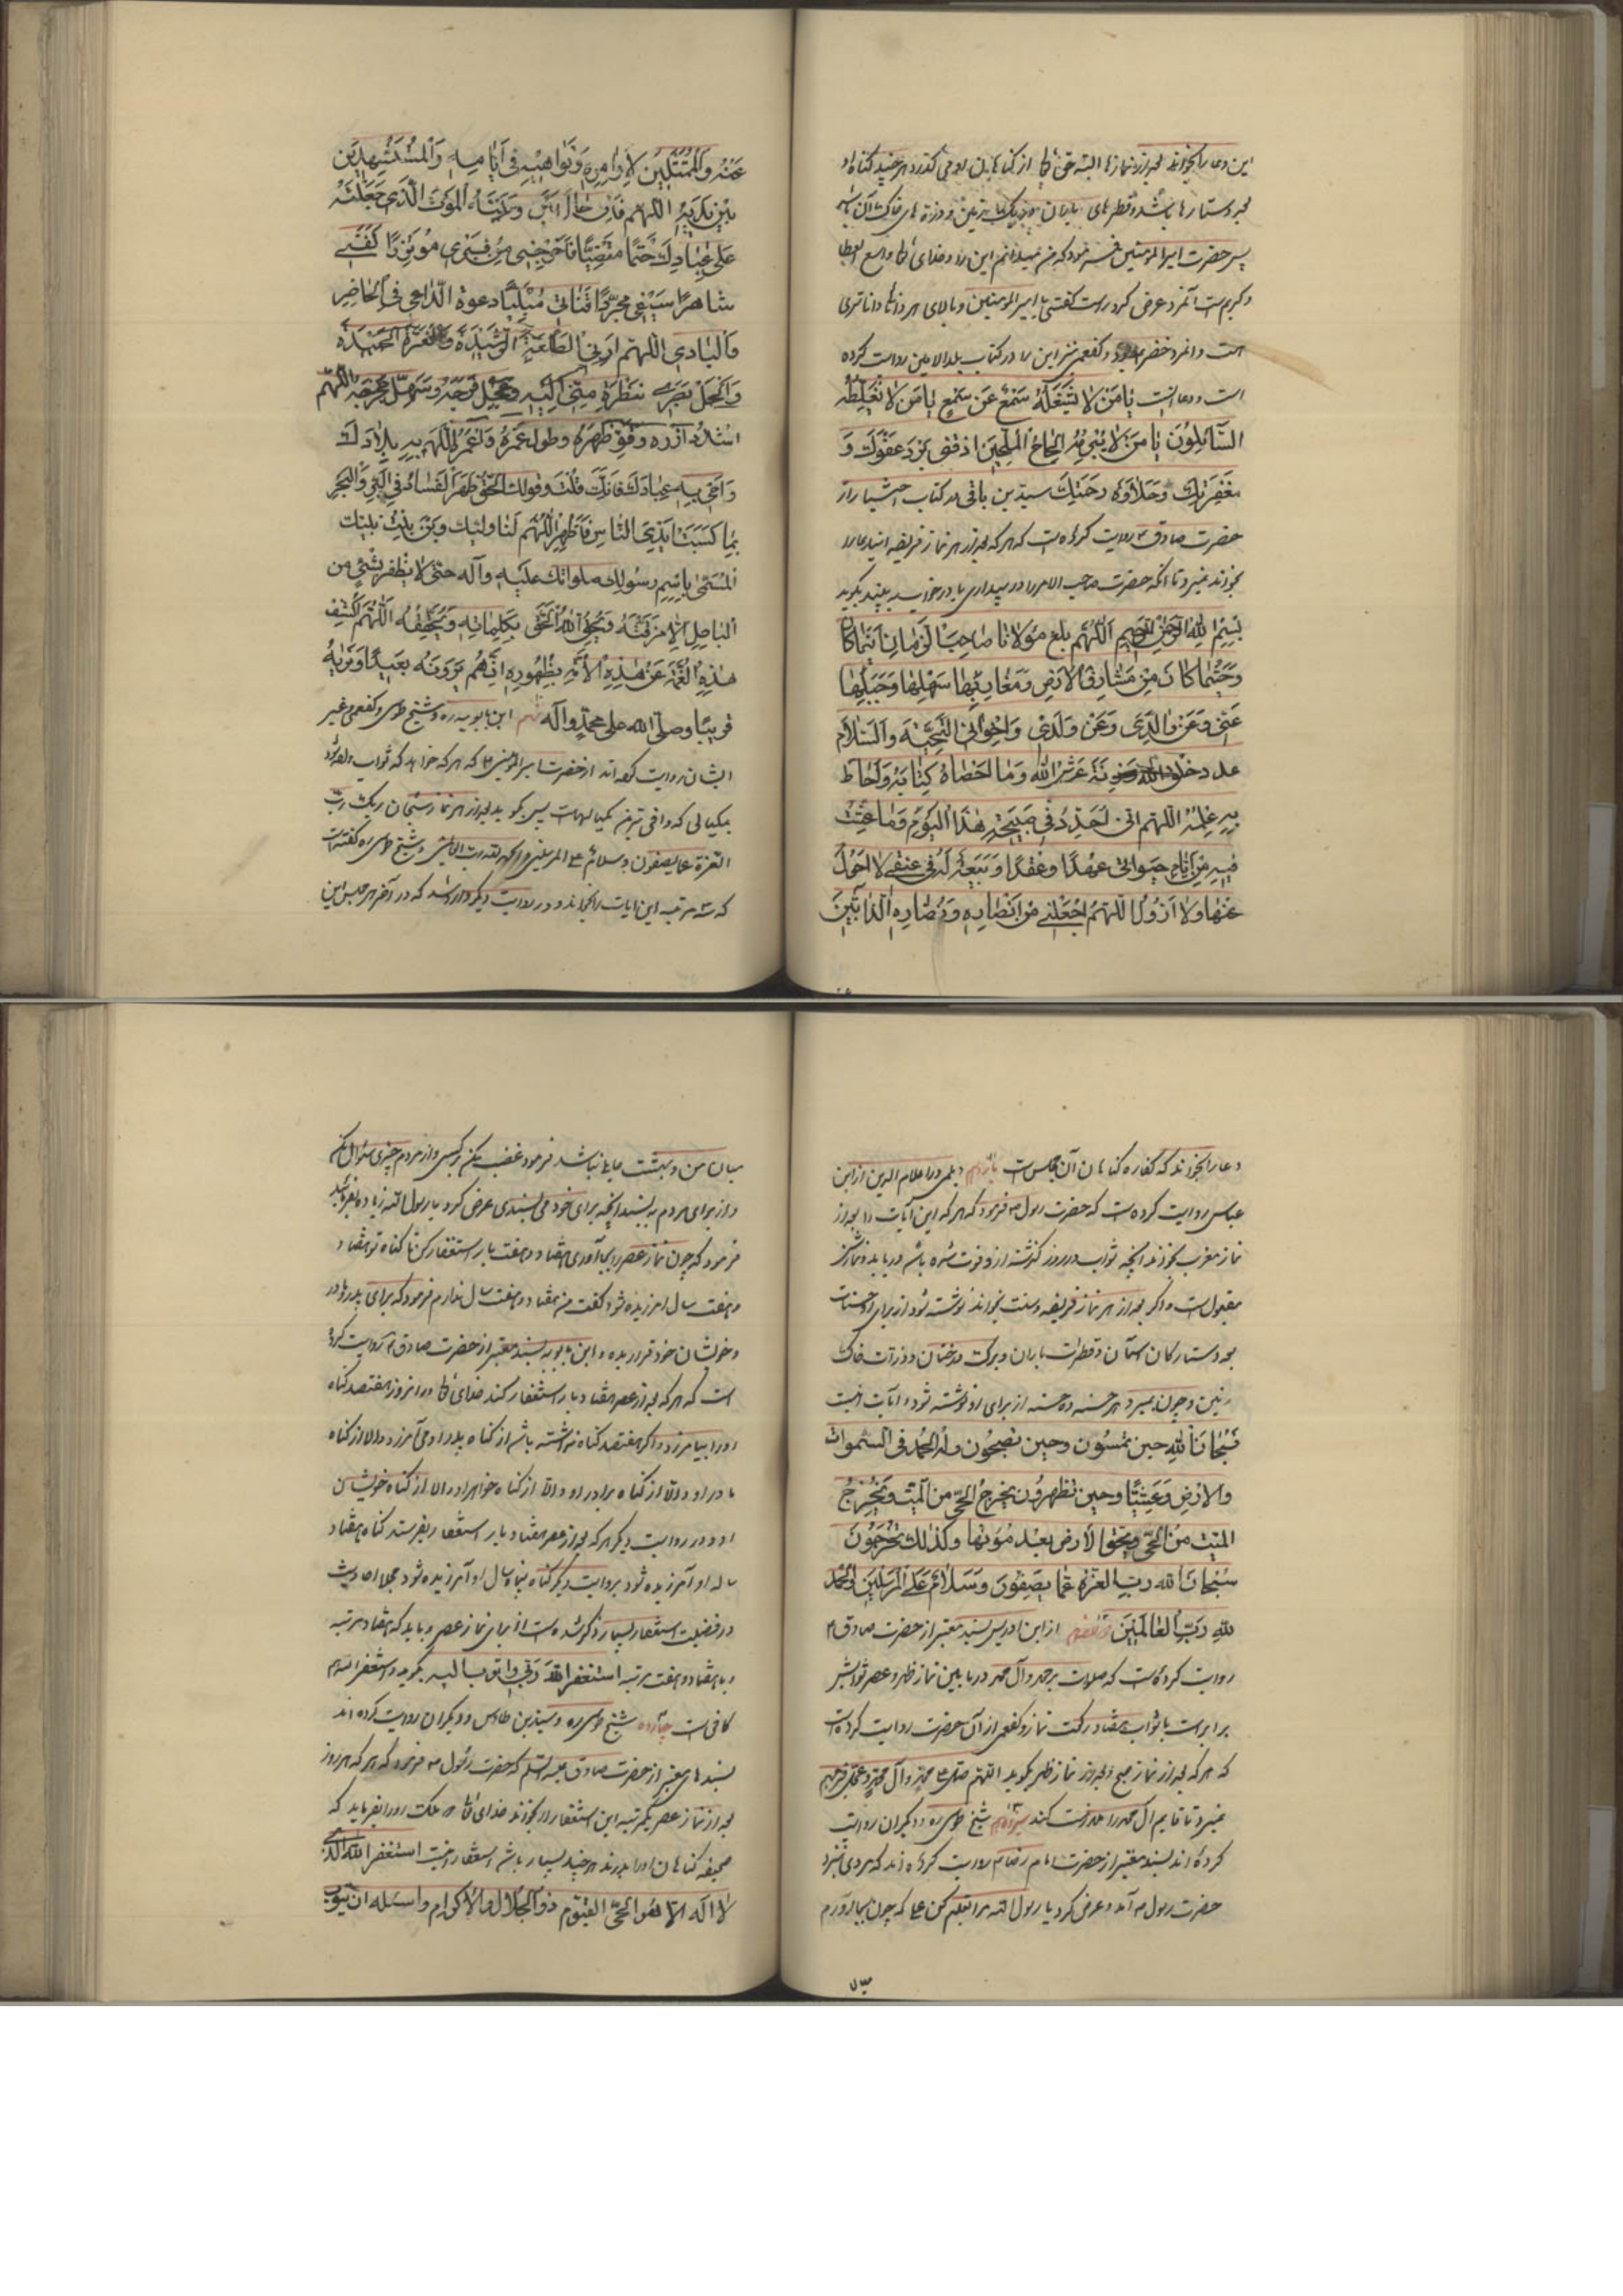 این دعا را بخواند بعد از نمازها البته حق تعالی از گناهان او می گذرد هر چند گناه او
بعدد ستارها باشد و قطرهای باران و ریگ زمین و ذره های خاک
پس حضرت امیرالمؤمنین فرمود که من میدانم این را و خدای تعالی واسع العطا
و کریم است آنمرد عرض کرد راست گفتی یا امیرالمؤمنین و بالای هر دانا داناتری
است و آنمرد خضر بود و کفعمی نیز این را در کتاب بلدالامین روایت کرده
است و دعا اینست یا مَن لا یَشغَلُهُ سَمعٌ عَن سَمعٍ یا مَن لا یُغَلِّطُهُ
السّائِلُونَ یا مَن لا یُبرِمُهُ اِلحاحُ المُلِحّینَ اذقنی بَردَ عَفوِكَ وَ
مَغفِرَتِكَ وَحَلاوَة رَحمَتِكَ سید بن باقی در کتاب اختیار از
حضرت صادق ع روایت کرده است که هر که بعد از هر نماز فریضه این دعا را
بخواند نمیرد تا آنکه حضرت صاحب الامر را در بیداری یا در خواب به بیند بگوید
بِسمِ اللهِ الرَّحمنِ الرَّحیمِ اَللّهُمَّ بَلِّغ مَولانا صاحِبَ الزَّمانِ اَینَما کانَ
وَحَیثُما کانَ مِن مَشارِقِ الاَرضِ وَمَغارِبِها سَهلِها وَجَبَلِها
عَنّی وَعَن والِدَیَّ وَعَن وَلَدی وَاِخوانی التَّحِیَّةَ وَالسَّلامَ
عدد خلق الله وَزِنَةَ عَرشِ اللهِ وَما اَحصاهُ کِتابُهُ وَاَحاطَ
بِهِ عِلمُهُ اَللّهُمَّ انی اُجَدِّدُ فی صَبیحَةِ هذَا الیَومِ وَما عِشتُ
فیهِ مِن اَیّامِ حَیوتی عَهدًا وَعَقدًا وَبَیعَةً لَهُ فی عُنُقی لا اَحُولُ
عَنها وَلا اَزُولُ اَللّهُمَّ اجعَلنی مِن اَنصارِهِ وَنُصّارِهِ الذّابّینَ
عَنهُ وَالمُمتَثِلینَ لِاَوامِرِهِ وَنَواهیهِ فی اَیّامِهِ وَالمُستَشهَدینَ
بَینَ یَدَیهِ اَللّهُمَّ فَاِن حالَ بَینی وَبَینَهُ المَوتُ الَّذی جَعَلتَهُ
عَلی عِبادِكَ حَتمًا مَقضِیًّا فَاَخرِجنی مِن قَبری مُؤتَزِرًا کَفَنی
شاهِرًا سَیفی مُجَرِّدًا قَناتی مُلَبِّیًا دَعوَةَ الدّاعی فِی الحاضِرِ
وَالبادی اَللّهُمَّ اَرِنِی الطَّلعَةَ الرَّشیدَةَ وَالغُرَّةَ الحَمیدَةَ
وَاکحُل بَصَری بِنَظرَةٍ مِنّی اِلَیهِ وَعَجِّل فَرَجَهُ وَسَهِّل مَخرَجَهُ اَللّهُمَّ
اشدُد اَزرَهُ وَقَوِّ ظَهرَهُ وَطَوِّل عُمرَهُ وَاعمُرِ اللّهُمَّ بِهِ بِلادَكَ
وَاَحیِ بِهِ عِبادَكَ فَاِنَّكَ قُلتَ وَقَولُكَ الحَقُّ ظَهَرَ الفَسادُ فِی البَرِّ وَالبَحرِ
بِما کَسَبَت اَیدِی النّاسِ فَاَظهِرِ اللّهُمَّ لَنا وَلِیَّكَ وَابنَ بِنتِ نَبِیِّكَ
المُسَمّی بِاسمِ رَسُولِكَ صلواتك عَلَیهِ وَآلِهِ حَتّی لا یَظفَرَ بِشَیءٍ مِن
الباطِلِ اِلّا مَزَّقَهُ وَیُحِقُّ اللهُ الحَقَّ بِکَلِماتِهِ وَیُحَقِّقُهُ اَللّهُمَّ اکشِف
هذِهِ الغُمَّةَ عَن هذِهِ الاُمَّةِ بِظُهُورِهِ اِنَّهُم یَرَونَهُ بَعیدًا وَنَریهُ
قَریبًا وصلّی الله علی محمّدٍ وآلِه دهم ابن بابویه ره و شیخ طوسی و کفعمی و غیر
ایشان روایت کرده اند از حضرت امیرالمؤمنین ع که هر که خواهد که ثواب داده شود
بمکیالی که وافی ترین مکیالهاست پس بگوید بعد از هر نماز سبحان ربک رب
العزة عما یصفون وسلام علی المرسلین والحمد لله رب العالمین و شیخ طوسی ره گفته است
که سه مرتبه این آیات را بخواند و در روایت دیگر وارد شده که در آخر هر مجلس این
دعا را بخواند که کفاره گناهان آن مجلس است یازدهم دیلمی در اعلام الدین از ابن
عباس روایت کرده است که حضرت رسول ص فرمود که هر که این آیات را بعد از
نماز مغرب بخواند آنچه ثواب در روز گذشته از او فوت شده باشد دریابد و نمازش
مقبول است و اگر بعد از هر نماز فریضه و سنت بخواند نوشته شود از برای او حسنات
بعدد ستارگان آسمان و قطرات باران و برگ درختان و ذرات خاک
زمین و چون بمیرد هر حسنه ده حسنه از برای او نوشته شود و آیات اینست
فَسُبحانَ اللهِ حینَ تُمسُونَ وَحینَ تُصبِحُونَ وَلَهُ الحَمدُ فِی السَّمواتِ
وَالاَرضِ وَعَشِیًّا وَحینَ تُظهِرُونَ یُخرِجُ الحَیَّ مِنَ المَیِّتِ وَیُخرِجُ
المَیِّتَ مِنَ الحَیِّ وَیُحیِی الاَرضَ بَعدَ مَوتِها وَکَذلِكَ تُخرَجُونَ
سُبحانَ الله رَبِّ العِزَّةِ عَمّا یَصِفُونَ وَسَلامٌ عَلَی المُرسَلینَ وَالحَمدُ
لِلّهِ رَبِّ العالَمینَ دوازدهم از ابن ادریس بسند معتبر از حضرت صادق ع
روایت کرده است که صلوات بر محمد وآل محمد در مابین نماز ظهر و عصر ثوابش
برابر است با ثواب هفتاد رکعت نماز و کفعمی از آن حضرت روایت کرده است
که هر که بعد از نماز صبح و بعد از نماز ظهر بگوید اللهم صل علی محمد وآل محمد وعجل فرجهم
نمیرد تا قایم آل محمد را ملازمت کند سیزدهم شیخ طوسی ره و دیگران روایت
کرده اند بسند معتبر از حضرت امام رضا ع روایت کرده اند که مردی نزد
حضرت رسول ص آمد و عرض کرد یا رسول الله مرا تعلیم کن عملی که چون بجا آورم
میان من و بهشت مانع نباشد فرمود غضب مکن بر کسی و از مردم چیزی سئوال مکن
و از برای مردم به پسند آنچه برای خود می پسندی عرض کرد یا رسول الله زیاده بفرمائید
فرمود که چون نماز عصر را بجا آوری هفتاد و هفت بار استغفار کن تا گناه تو هفتاد
و هفت سال آمرزیده شود گفت من هفتاد و هفت سال ندارم فرمود که برای پدر و مادر
و خویشان خود قرار بده و ابن بابویه بسند معتبر از حضرت صادق ع روایت کرده
است که هر که بعد از عصر هفتاد بار استغفار کند خدای تعالی در آنروز هفتصد گناه
او را بیامرزد و اگر هفتصد گناه نداشته باشد از گناه پدر او می آمرزد والا از گناه
مادر او والا از گناه برادر او والا از گناه خواهر او والا از گناه خویشان
او و در روایت دیگر هر که بعد از عصر هفتاد بار استغفار بفرستد گناه هفتاد
ساله او آمرزیده شود بروایت دیگر گناه پنجاه سال او آمرزیده شود مجملا احادیث
در فضیلت استغفار بسیار ذکر شده است از برای نماز عصر و باید که هفتاد مرتبه
و یا هفتاد و هفت مرتبه استغفر الله ربی واتوب الیه بگوید و استغفر الله هم
کافی است چهارده شیخ طوسی ره و سید بن طاوس و دیگران روایت کرده اند
بسندهای معتبر از حضرت صادق علیه السلم که حضرت رسول ص فرمود که هر که هر روز
بعد از نماز عصر یکمرتبه این استغفار را بخواند خدای تعالی دو ملک را بفرماید که
صحیفه گناهان او را بدرند هر چند بسیار باشد استغفار اینست استغفر الله الذی
لا اله الا هو الحیّ القیّوم ذو الجلال والاکرام واسئله ان یتوب